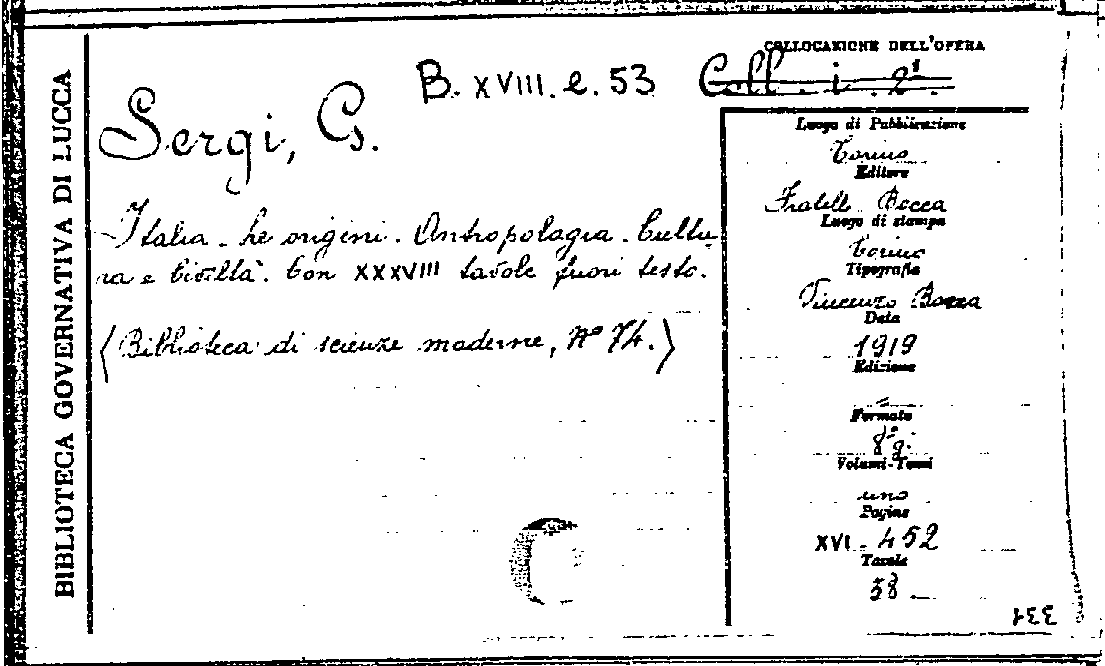 BIBLIOTECA GOVERNATIVA DI LUCCA
COLLOCAZIONE DELL'OPERA
B. XVIII. e. 53 Coll. i. 2.
Sergi, G.
Italia - Le origini. Antropologia. Cultu
ra e Civiltà. Con XXXVIII tavole fuori testo.
(Biblioteca di scienze moderne, No 74.)
Luogo di Pubblicazione
Torino
Editore
Fratelli Bocca
Luogo di stampa
Torino
Tipografia
Vincenzo Bocca
Data
1919
Edizione
=
Formato
8° g.
Volumi-Tomi
uno
Pagine
XVI - 452
Tavole
38
331